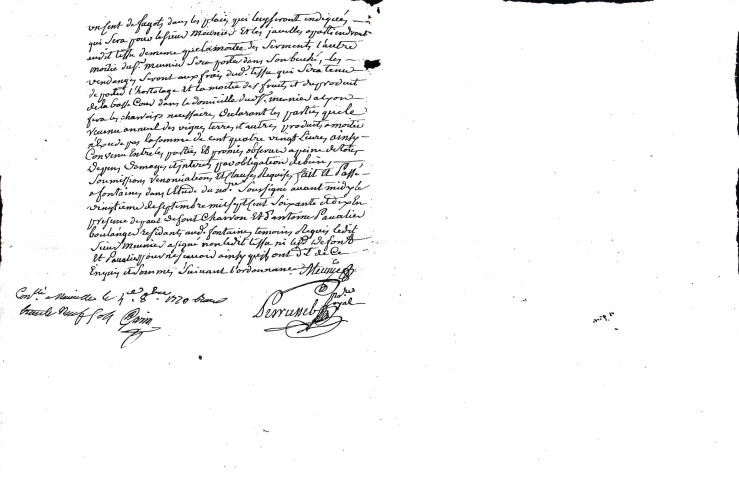 un cent de fagots dans les places qui luy seront indiquées
qui sera pour le sieur meunier Et les javelles appartiendront
audit tissu de meme que la moitié des serments l'autre
moitié du sr. meunier sera portée dans son buché, les
vendanges seront aux frais dud. tissu qui sera tenu
de porter l'hortolage et la moitié des fruits et du produit
de la basse Cour dans le domicille du sr. meunier a Lyon
fera les charrois necessaires, declarant les parties que le
revenu annuel des vignes, terres et autres produits a moitié
n'excede pas la somme de cent quatre vingt Livres, ainsy
Convenu Entre les parties Et promis observer a peine de tous
depens domages et interets par obligation de biens,
Soumissions, renonciations, Et clauses Requises, fait et Passé
a fontaines dans l'Etude du nore. Soussigné avant midy le
vingtième de septembre mil sept cent soixante et dix En
presence de de font Charron Et d'antoine Pavalier
boulanger residants aud. fontaines temoins Requis ledit
Sieur Meunier a signé non ledit tissa ni lesd. de font
Et Pavalier pour ne sçavoir ainsy qu'ils ont dit de Ce
Enquis et Sommés Suivant l'ordonnance Meunier
Conllé a Neuville le 4e 8bre 1770 Reçu
neuf sols
Perrussel nore Royal